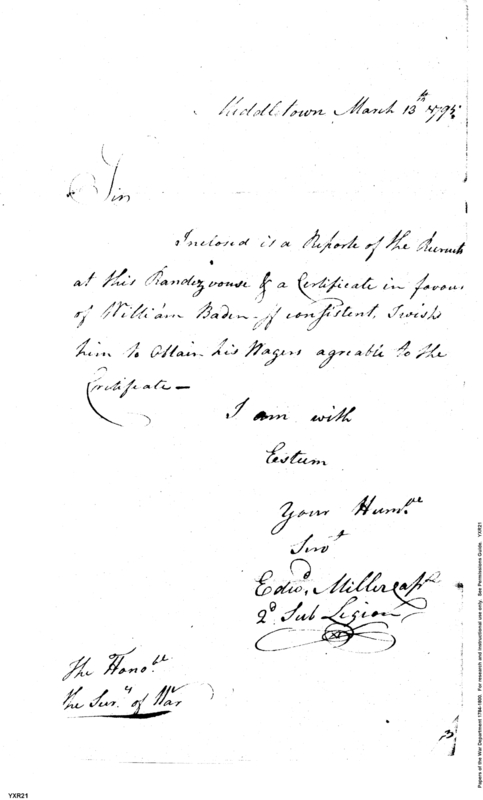 Middletown March 13th 1795
Sir
Inclosed is a Reporte of the Recruits
at this Randezvouse & a Certificate in favour
of William Baden - if consistent, I wish
him to Obtain his Wagers agreable to the
Certificate —
I am with
Esteem
Your Humble
Servt
Edwd. Miller Capt
2d Sub Legion
The Honoble
the Secy of War
YXR21
Papers of the War Department 1784-1800. For research and instructional use only. See Permissions Guide. YXR21